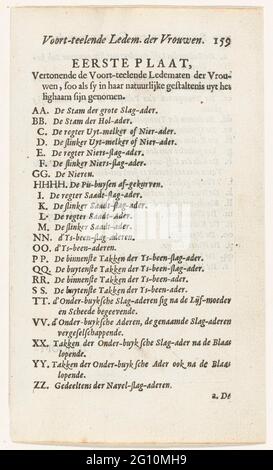 Voort-teelende Ledem. der Vrouwen. 159
EERSTE PLAAT,
Vertonende de Voort-teelende Ledematen der Vrou-
wen, soo als sy in haar natuurlijke gestaltenis uyt het
lighaam sijn genomen.
AA. De Stam der grote Slag-ader.
BB. De Stam der Hol-ader.
C. De regter Uyt-melker of Nier-ader.
D. De slinker Uyt-melker of Nier-ader.
E. De regter Niers-slag-ader.
F. De slinker Niers-slag-ader.
GG. De Nieren.
HHHH. De Pis-buysen af-gekorven.
I. De regter Saadt-slag-ader.
K. De slinker Saadt-slag-ader.
L. De regter Saadt-ader.
M. De slinker Saadt-ader.
NN. d'Ys-been-slag-aderen.
OO. d'Ys-been-aderen.
PP. De binnenste Takken der Ys-been-slag-ader.
QQ. De buytenste Takken der Ys-been-slag-ader.
RR. De binnenste Takken der Ys-been-ader.
SS. De buytenste Takken der Ys-been-ader.
TT. d'Onder-buyksche Slag-aderen sig na de Lijf-moeder
en Scheede begeevende.
VV. d'Onder-buyksche Aderen, de genaamde Slag-aderen
vergeselschappende.
XX. Takken der Onder-buyksche Slag-ader na de Blaas
lopende.
YY. Takken der Onder-buyksche Ader ook na de Blaas
lopende.
ZZ. Gedeeltens der Navel-slag-aderen.
2. De
alamy